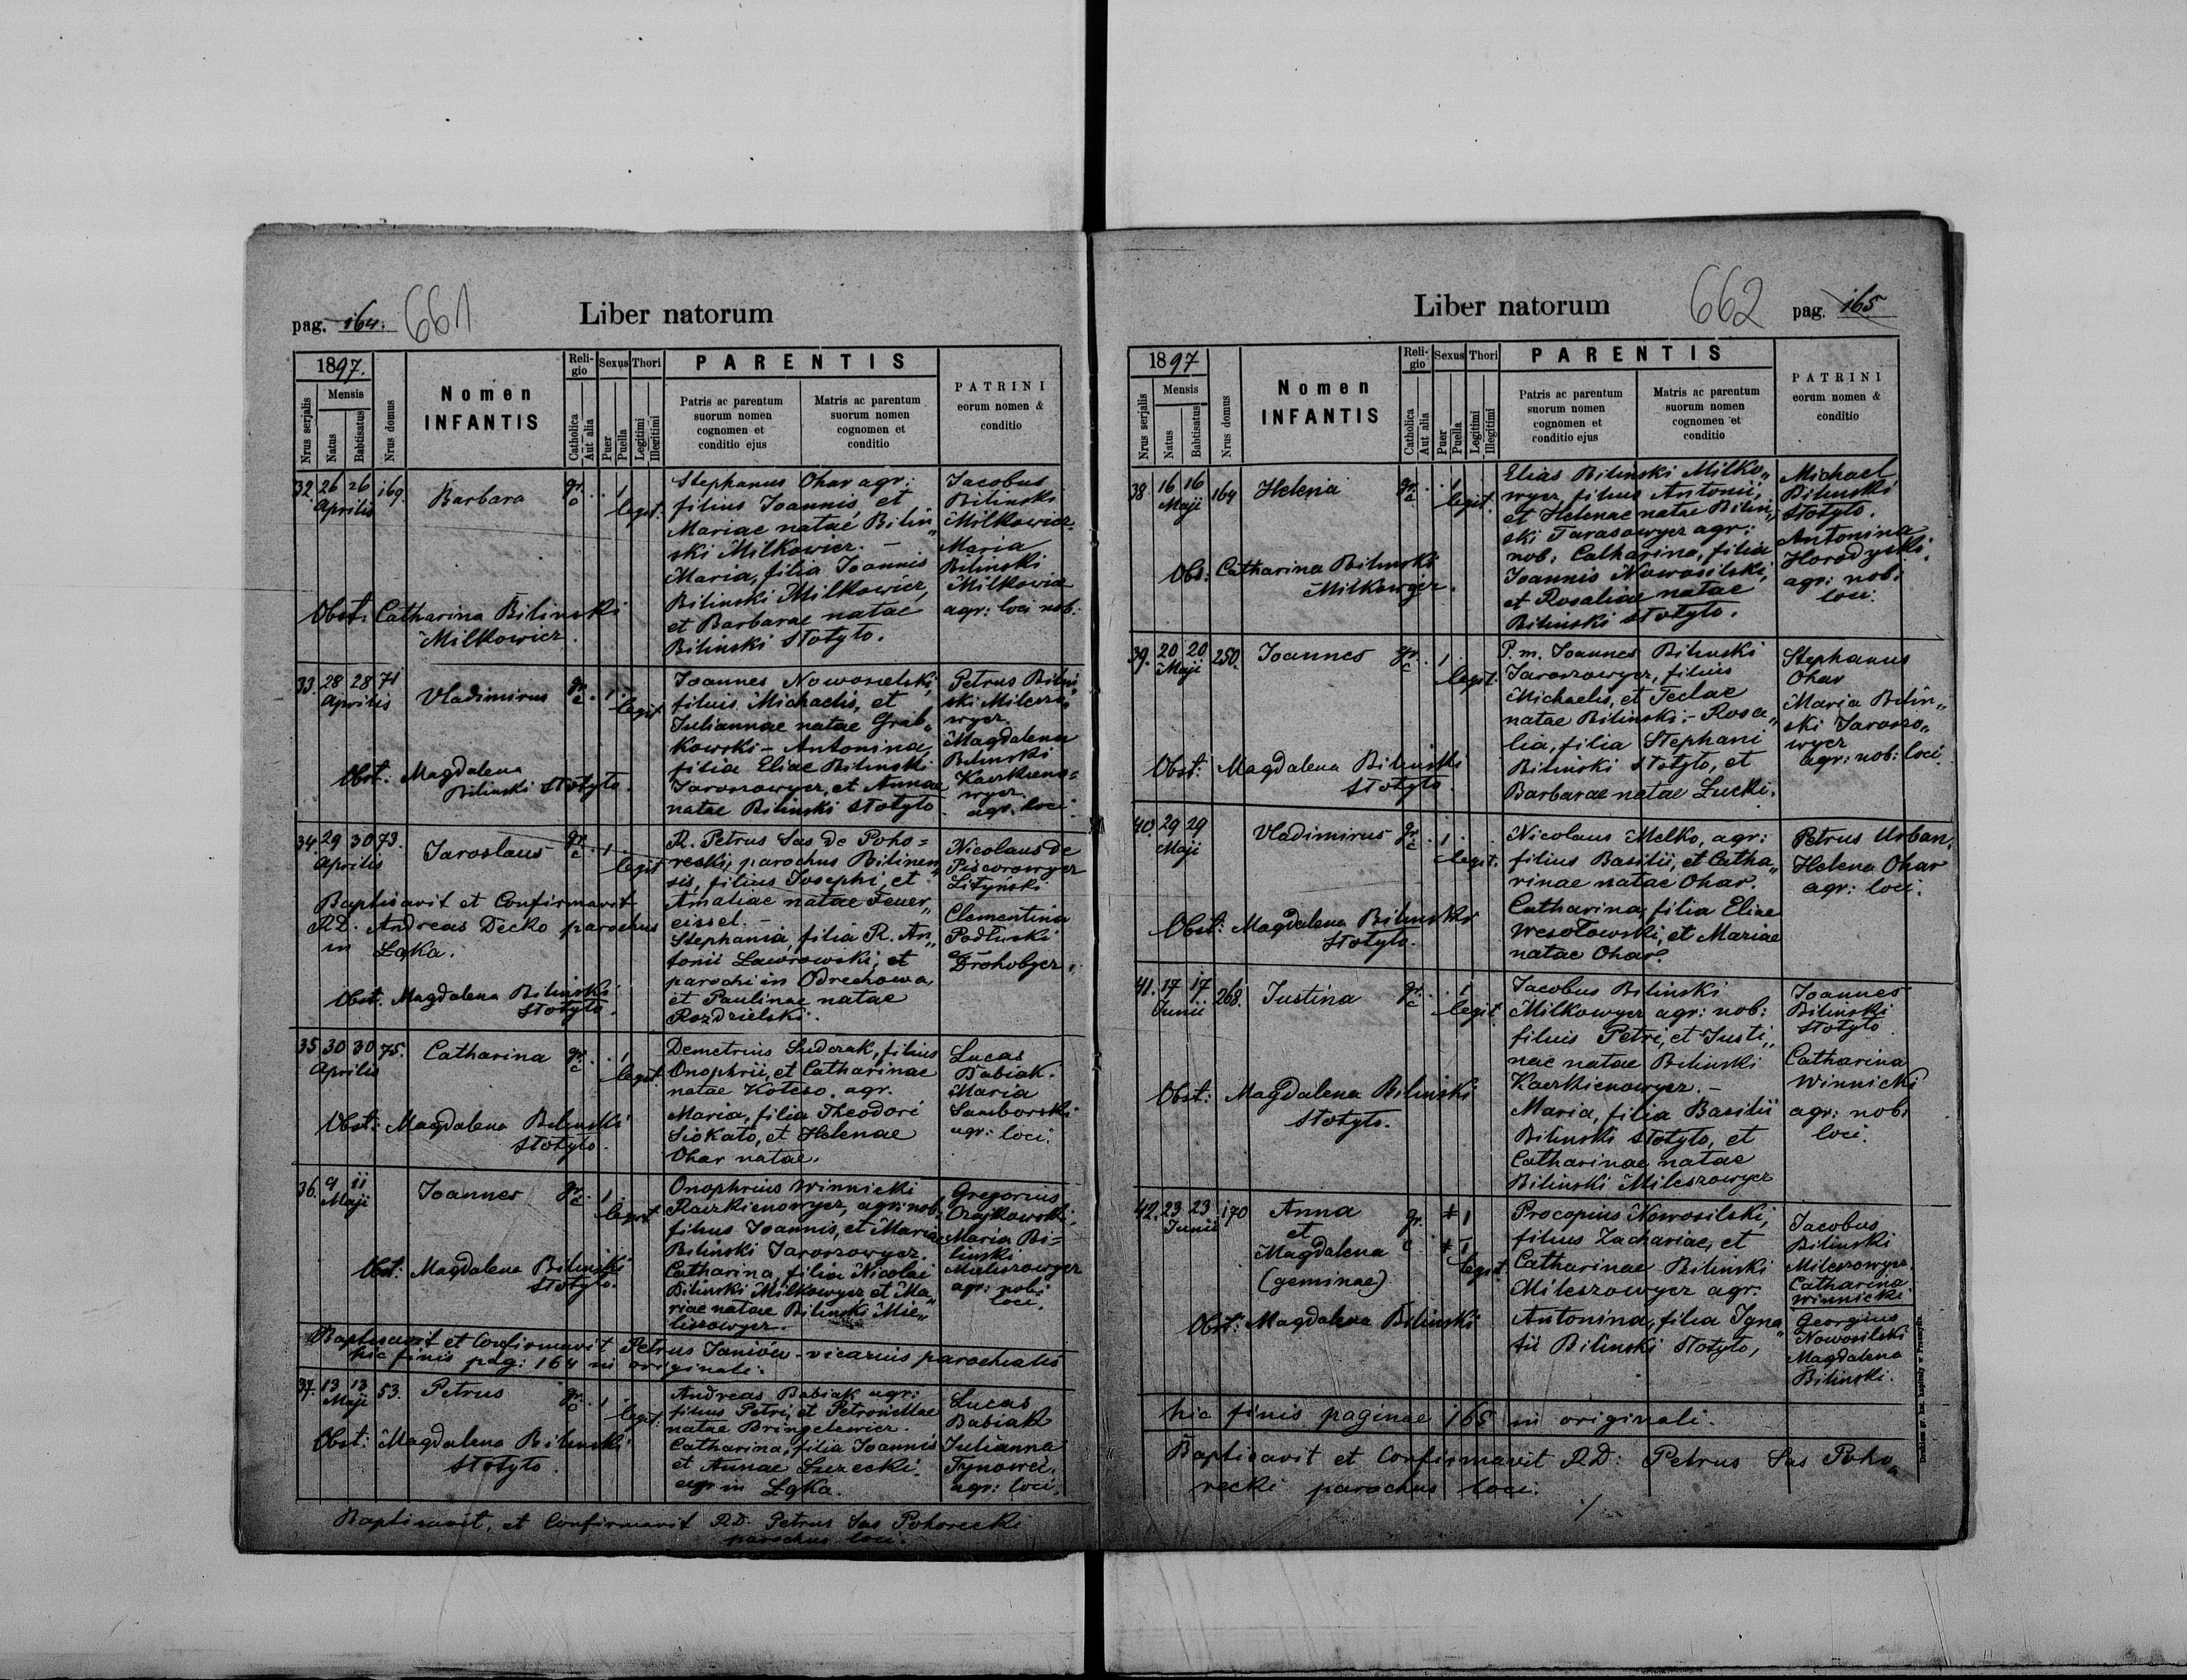 pag. 164. 661 Liber natorum
1897.
Nrus serjalis
Mensis
Natus
Babtisatus
Nrus domus
Nomen
INFANTIS
Religio
Catholica
Aut alia
Sexus
Puer
Puella
Thori
Legitimi
Illegitimi
PARENTIS
Patris ac parentum
suorum nomen
cognomen et
conditio ejus
Matris ac parentum
suorum nomen
cognomen et
conditio
PATRINI
eorum nomen &
conditio
32. 26 26 169. Barbara gr. c 1 legit.
Aprilis
Stephanus Ohar agr:
filius Joannis, et
Mariae natae Bilin„
ski Milkowicz. –
Maria, filia Joannis
Bilinski Milkowicz,
et Barbarae natae
Bilinski Stotyto.
Jacobus
Bilinski
Milkowicz.
Maria
Bilinski
Milkowicz
agr: loci nob:
Obst: Catharina Bilinski
Milkowicz.
33. 28 28 71 Vladimirus gr. c 1 legit
Aprilis
Joannes Nowosielski,
filius Michaelis, et
Juliannae natae Grab„
kowski – Antonina,
filia Eliae Bilinski
Jaroszowycz, et Annae
natae Bilinski Stotyto
Petrus Bilin„
ski Milesz„
wycz.
Magdalena
Bilinski
wycz.
agr. loci.
Obst: Magdalena
Bilinski Stotyto.
34 29 30 73. Jaroslaus gr c 1 legit
Aprilis
R. Petrus Sas de Poho=
recki, parochus Bilinen„
sis, filius Josephi, et
Amaliae natae Feuer„
eissel. –
Stephania, filia R. An„
tonii Lawrowski, et
parochi in Odrechowa,
et Paulinae natae
Rozdzielski.
Nicolaus de
Lityński
Clementina
Podłuski
Drohobycz.
Baptisavit et Confirmavit
R.D. Andreas Decko parochus
in Łąka.
Obst. Magdalena Bilinski
Stotyto.
35 30 30 75. Catharina gr. c 1 legit
Aprilis
Demetrius Sudczak, filius
Onophrii, et Catharinae
natae Koteso. agr.
Maria, filia Theodori
Siokato, et Helenae
Ohar natae.
Lucas
Babiak.
Maria
Samborski
agr: loci.
Obst: Magdalena Bilinski
Stotyto.
36. 9 11 Joannes gr. c 1 legit
Maji
Onophrius Winnicki
agr: nob:
filius Joannis, et Mariae
Bilinski Jaroszowycz.
Catharina, filia Nicolai
Bilinski Milkowycz et Ma„
riae natae Bilinski Mie„
liszowycz.
Gregorius
Czajkowski.
Maria Bi=
linski
Mieliszowycz
agr: nob:
loci.
Obst: Magdalena Bilinski
Stotyto.
Baptisavit et Confirmavit Petrus Janiów – vicarius parochialis
hic finis pag: 164 in originali.
37. 13 13 53. Petrus gr. c 1 legit.
Maji
Andreas Babiak agr:
filius Petri, et Petronellae
natae Bringelewicz.
Catharina, filia Joannis
et Annae Szczecki.
agr in Łąka.
Lucas
Babiak
Julianna
agr: loci.
Obst: Magdalena Bilinski
Stotyto.
Baptisavit, et Confirmavit R.D. Petrus Sas Pohorecki
parochus loci.
Liber natorum 662 pag. 165
1897
Nrus serjalis
Mensis
Natus
Babtisatus
Nrus domus
Nomen
INFANTIS
Religio
Catholica
Aut alia
Sexus
Puer
Puella
Thori
Legitimi
Illegitimi
PARENTIS
Patris ac parentum
suorum nomen
cognomen et
conditio ejus
Matris ac parentum
suorum nomen
cognomen et
conditio
PATRINI
eorum nomen &
conditio
38 16 16 164 Helena gr. c 1 legit.
Maji
Elias Bilinski Milko„
wycz, filius Antonii,
et Helenae natae Bilin„
ski Tarasowycz agr:
nob: Catharina, filia
Joannis Nowosilski,
et Rosaliae natae
Bilinski Stotyto.
Michael
Bilinski
Stotyto.
Antonina
Horodyski.
agr: nob:
loci.
Obs: Catharina Bilinski
Milkowycz.
39. 20 20 250. Joannes gr. c 1 legit.
Maji
P. m. Joannes Bilinski
Jaroszowycz, filius
Michaelis, et Teclae
natae Bilinski – Rosa„
lia, filia Stephani
Bilinski Stotyto, et
Barbarae natae Łucki.
Stephanus
Ohar
Maria Bilin„
ski Jaroszo„
wycz
agr: nob: loci.
Obst: Magdalena Bilinski
Stotyto.
40 29 29 Vladimirus gr. c 1 legit.
Maji
Nicolaus Melko, agr:
filius Basilii, et Catha„
rinae natae Ohar.
Catharina, filia Eliae
Wesołowski, et Mariae
natae Ohar.
Petrus Urban.
Helena Ohar
agr: loci.
Obst: Magdalena Bilinski
Stotyto.
41. 17 17 268. Justina gr. c 1 legit.
Junii
Jacobus Bilinski
Milkowycz agr: nob:
filius Petri, et Justi„
nae natae Bilinski
Kaczkienowycz. –
Maria, filia Basilii
Bilinski Stotyto, et
Catharinae natae
Bilinski Mileszowycz
Joannes
Bilinski
Stotyto.
Catharina
Winnicki
agr: nob:
loci.
Obst: Magdalena Bilinski
Stotyto.
42. 23 23 170 Anna gr. 1
Junii et
Magdalena c 1
(geminae) legit.
Procopius Nowosilski,
filius Zachariae, et
Catharinae Bilinski
Mileszowycz agr.
Antonina, filia Igna„
tii Bilinski Stotyto,
Jacobus
Bilinski
Mileszowycz.
Catharina
Winnicki
Georgius
Nowosilski
Magdalena
Bilinski.
Obst: Magdalena Bilinski
hic finis paginae 165 in originali.
Baptisavit et Confirmavit R.D: Petrus Sas Poho„
recki parochus loci.